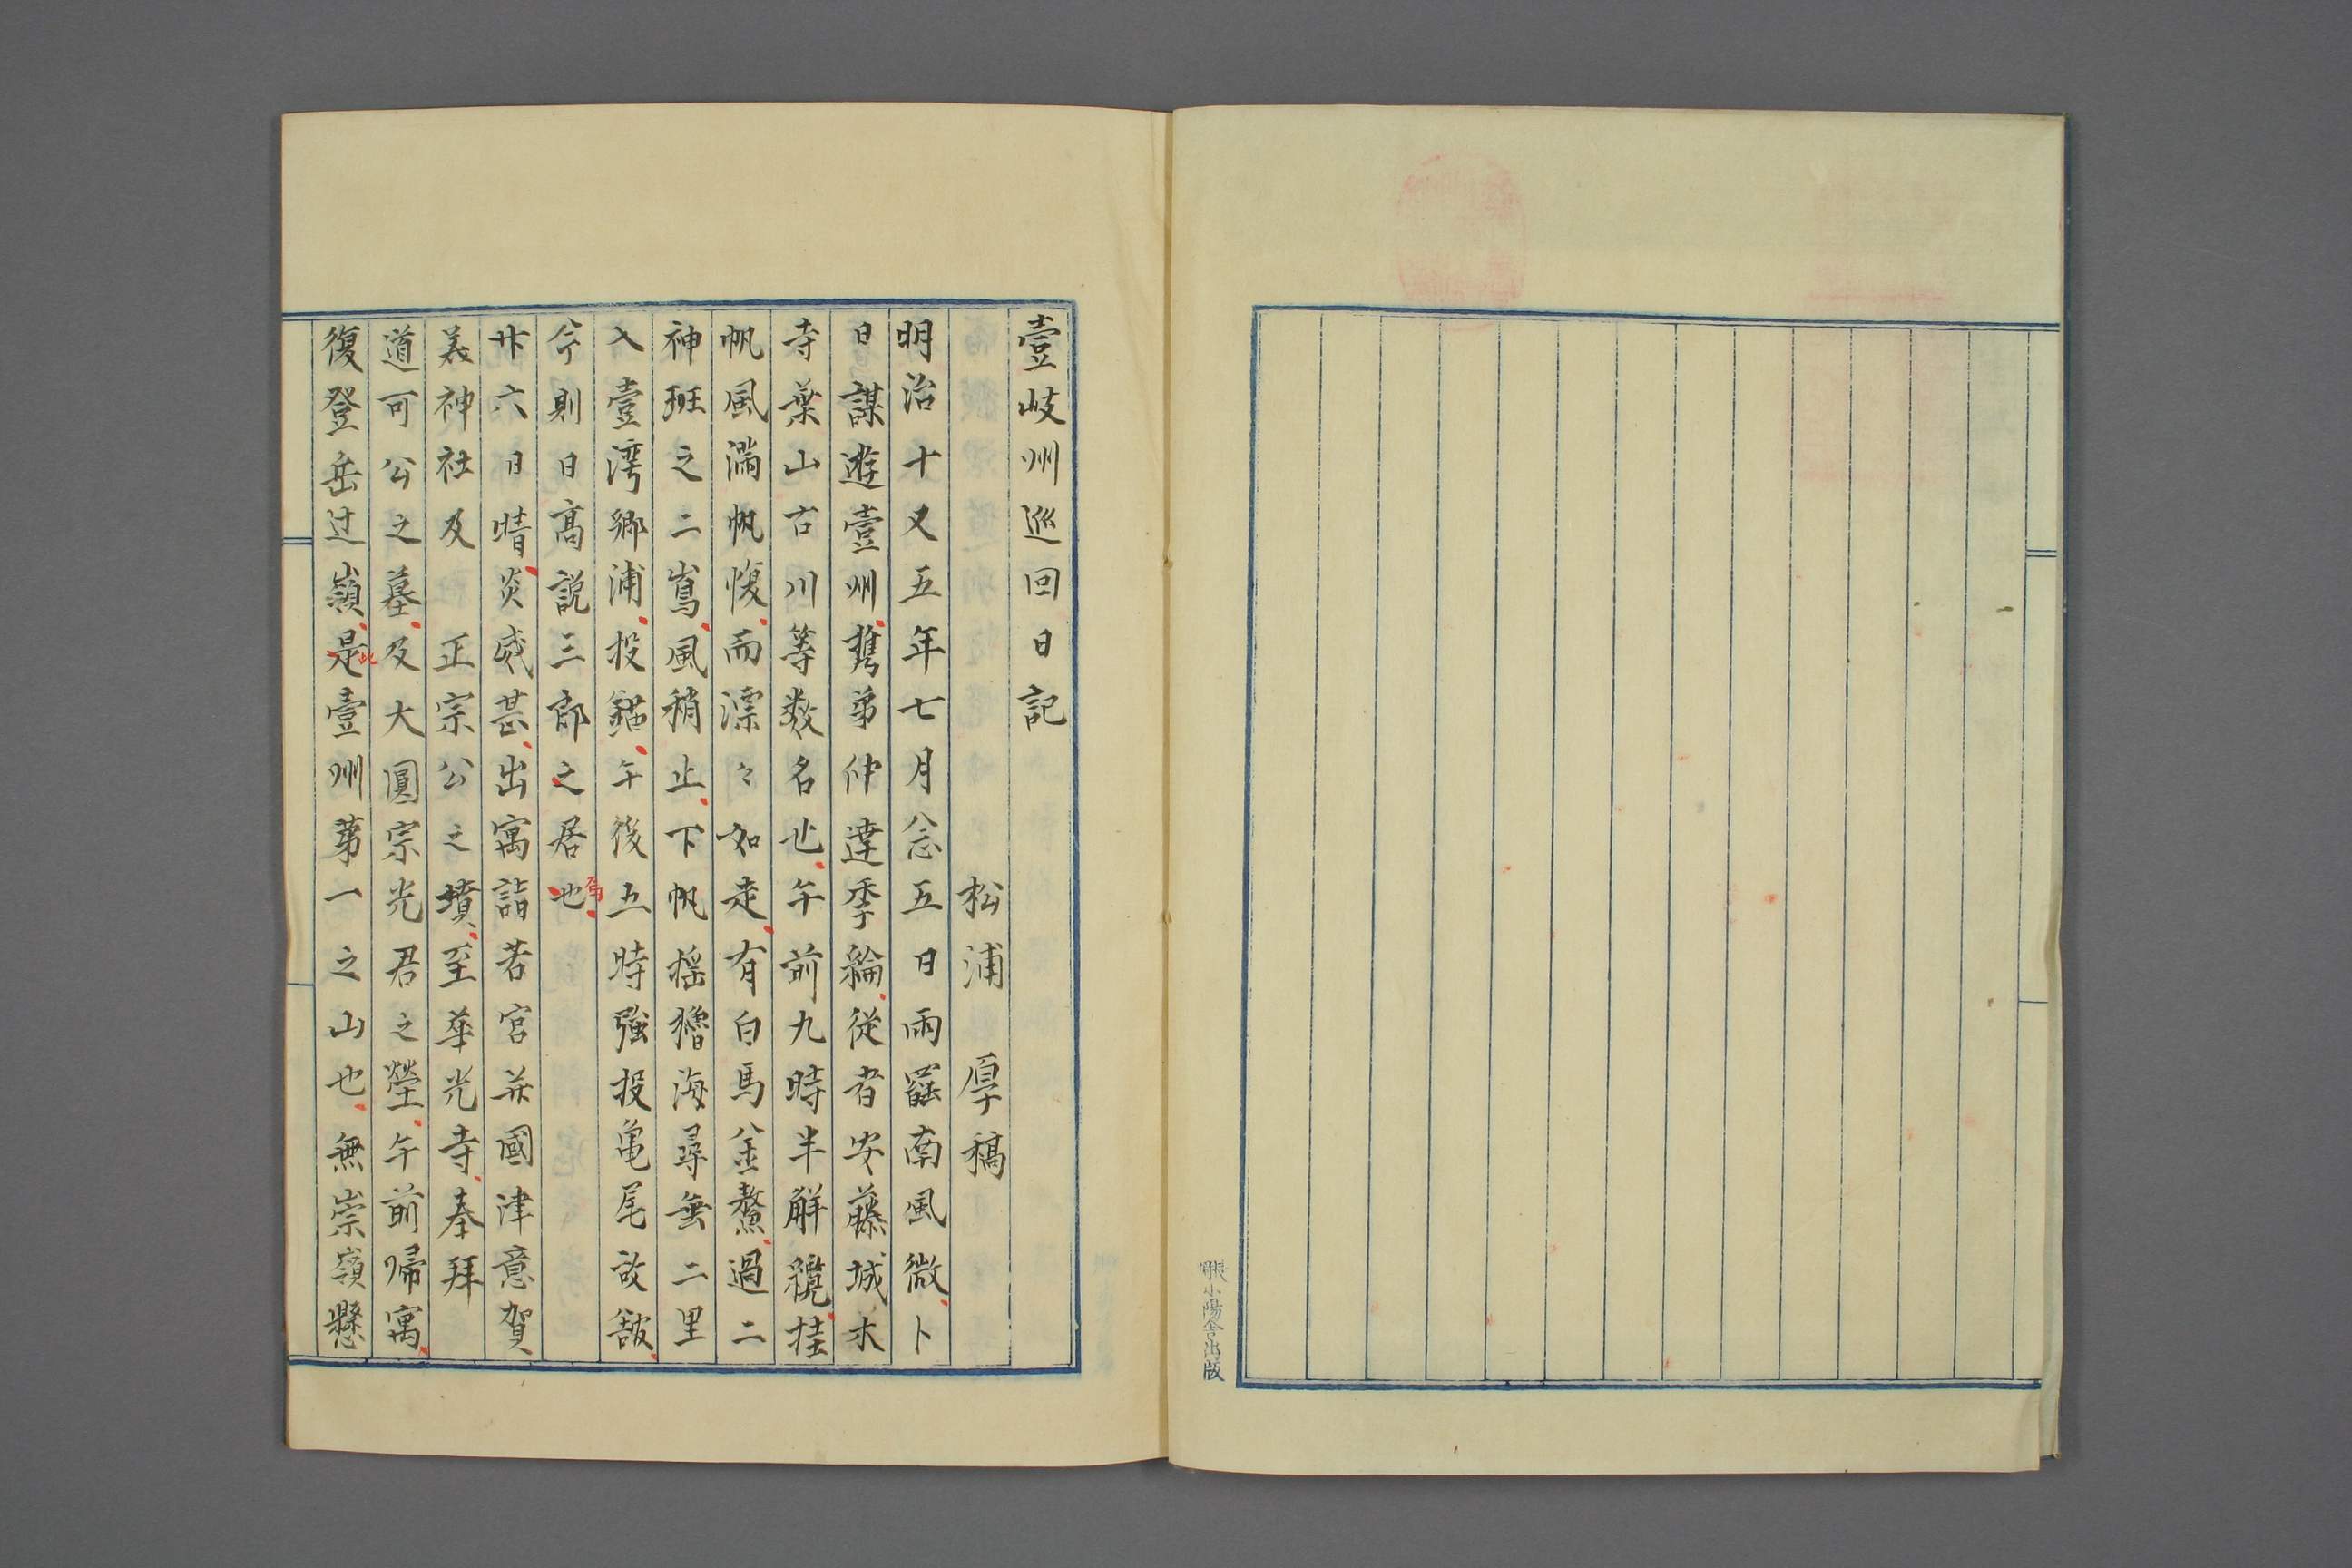 壹岐州巡回日記
松浦厚稿
明治十又五年七月念五日雨霽南風微卜
日謀遊壹州携弟仲達季綸從者安藤城木
寺葉山古川等数名也午前九時半解纜挂
帆風満帆愎而漂々如走有白馬金鰲過二
神班之二嶌風稍止下帆揺櫓海尋無二里
入壹湾郷浦投錨午後五時強投亀尾故皷
今則日髙説三郎之居也焉
廿六日晴炎威甚出寓詣若宮并國津意賀
美神社及正宗公之墳至華光寺奉拜
道可公之墓及大圓宗光君之塋午前帰寓
復登岳辻嶺是此壹州第一之山也無崇嶺懸
小陽舎出版